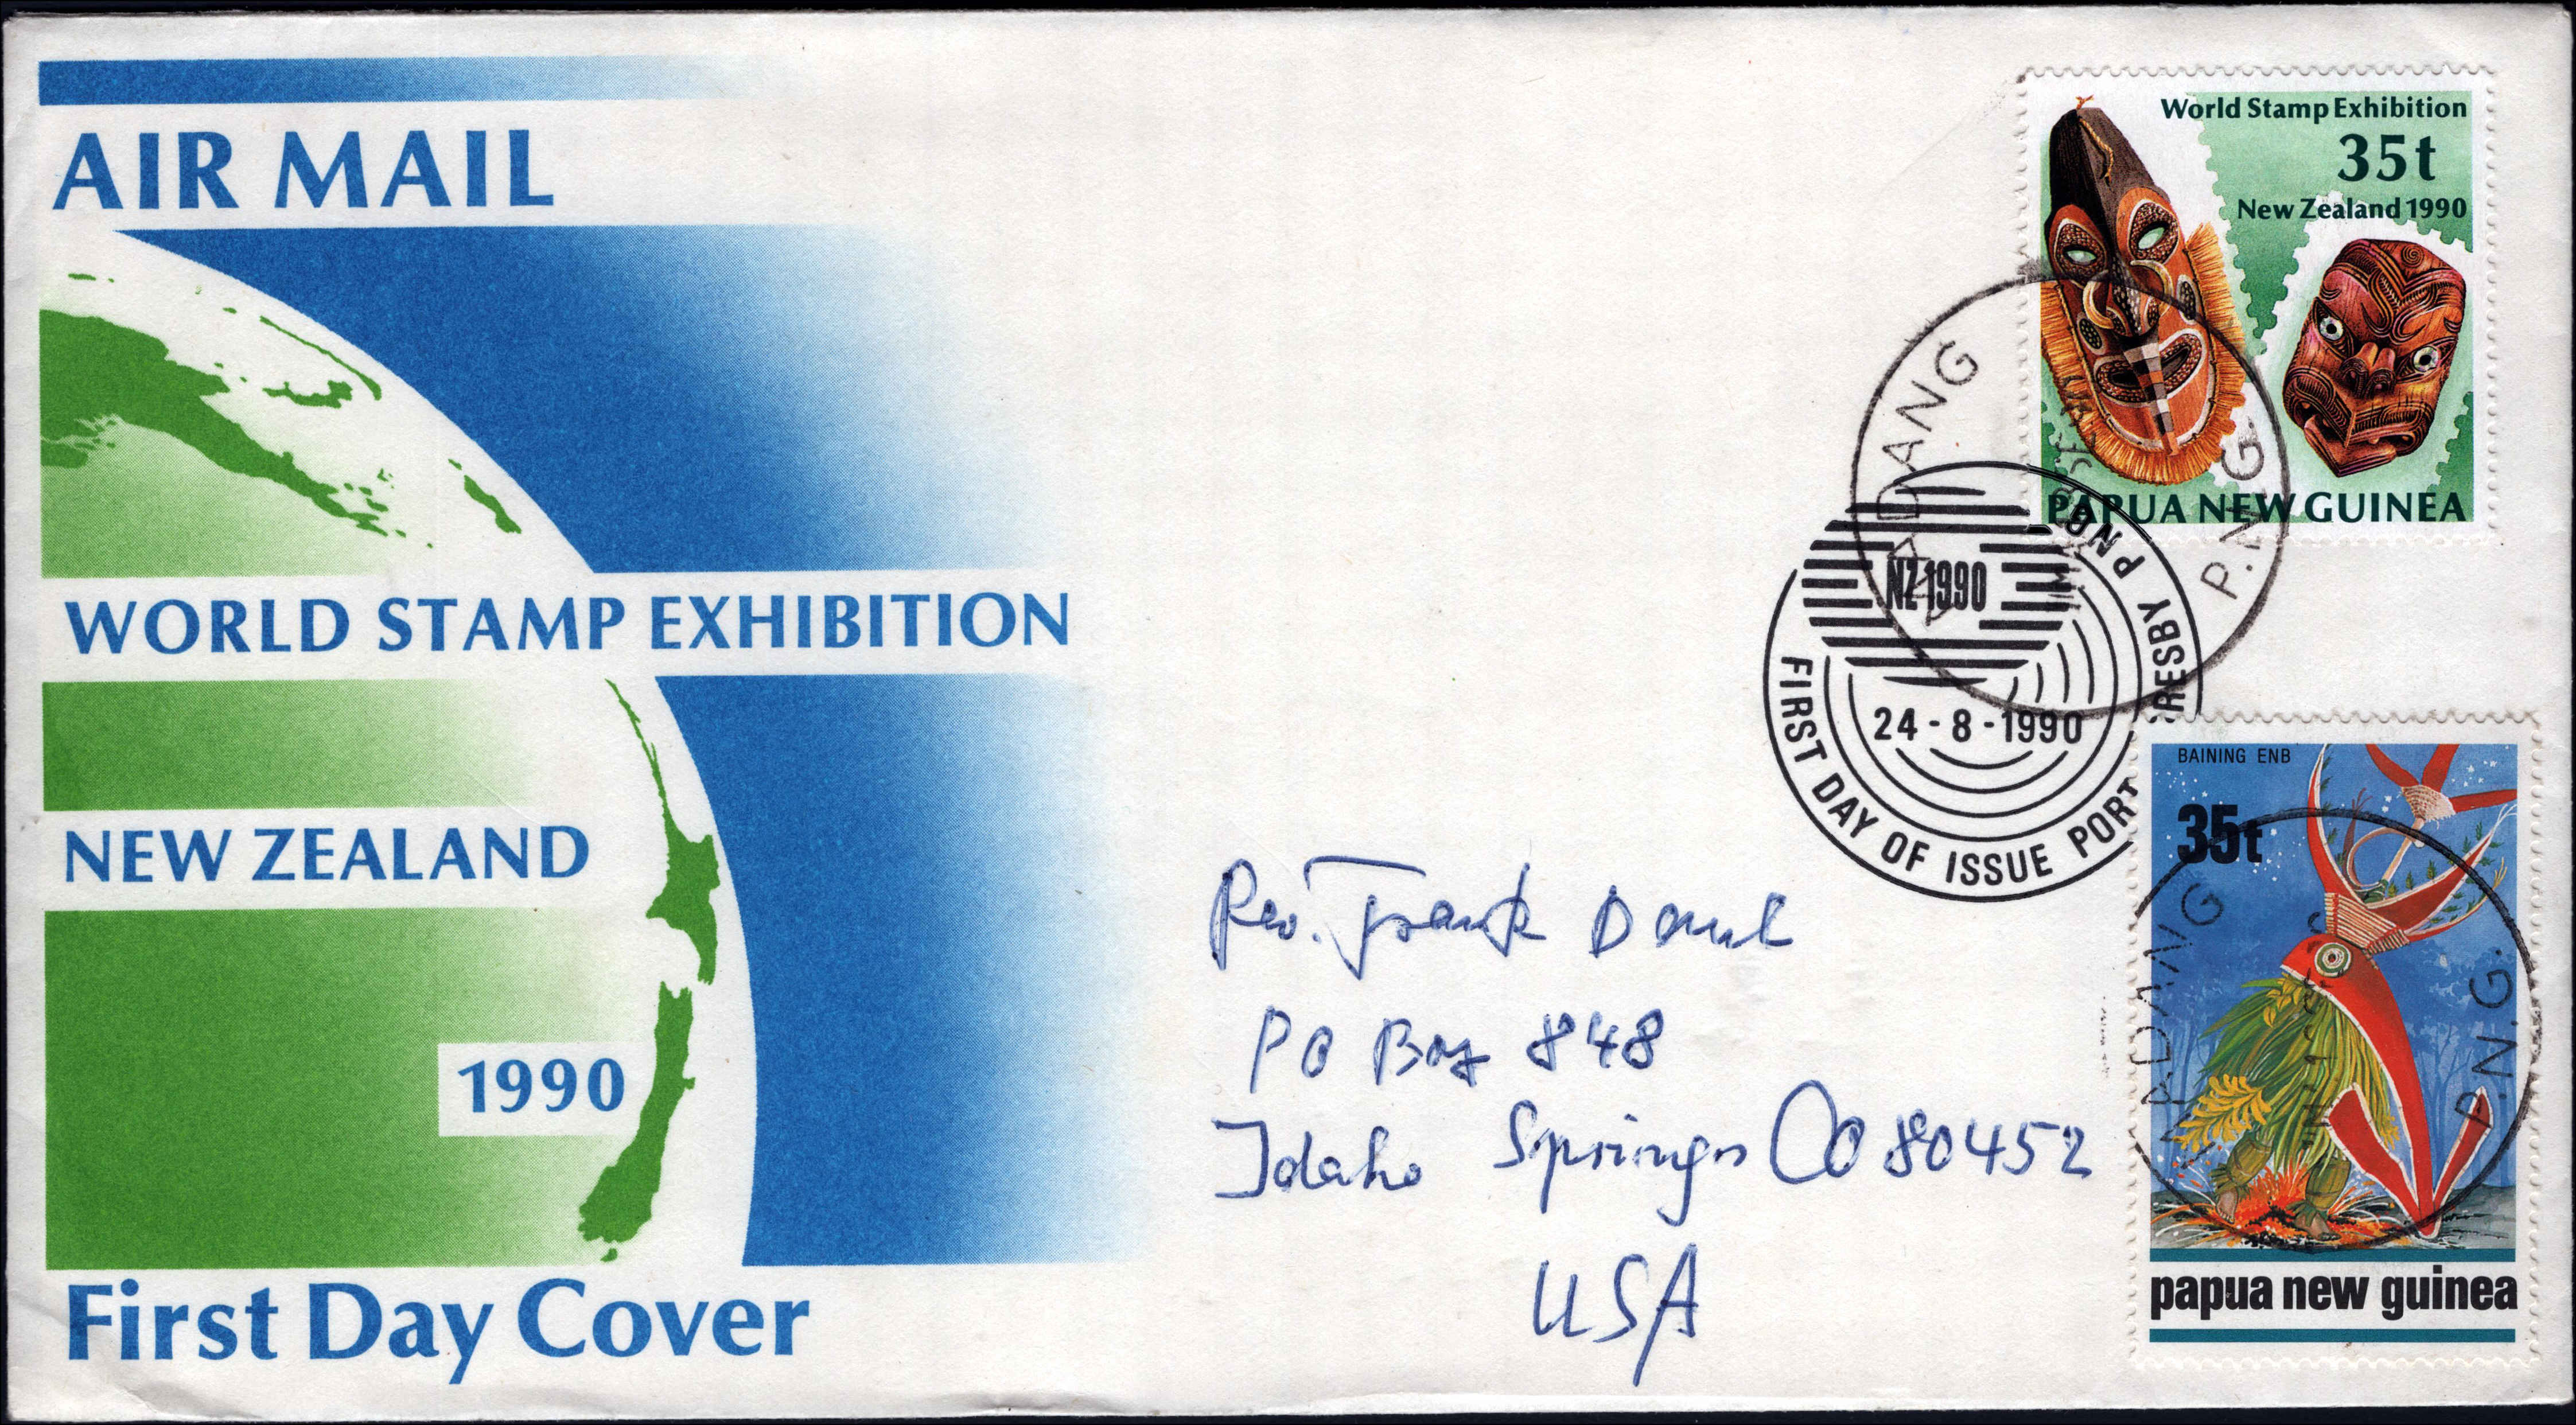 AIR MAIL
WORLD STAMP EXHIBITION
NEW ZEALAND
1990
First Day Cover
World Stamp Exhibition
35t
New Zealand 1990
PAPUA NEW GUINEA
MADANG
P.N.G.
NZ 1990
24-8-1990
FIRST DAY OF ISSUE PORT RESBY PNG
BAINING ENB
35t
MADANG
P.N.G.
papua new guinea
Rev. Frank
PO Box 848
Idaho Springs CO 80452
USA